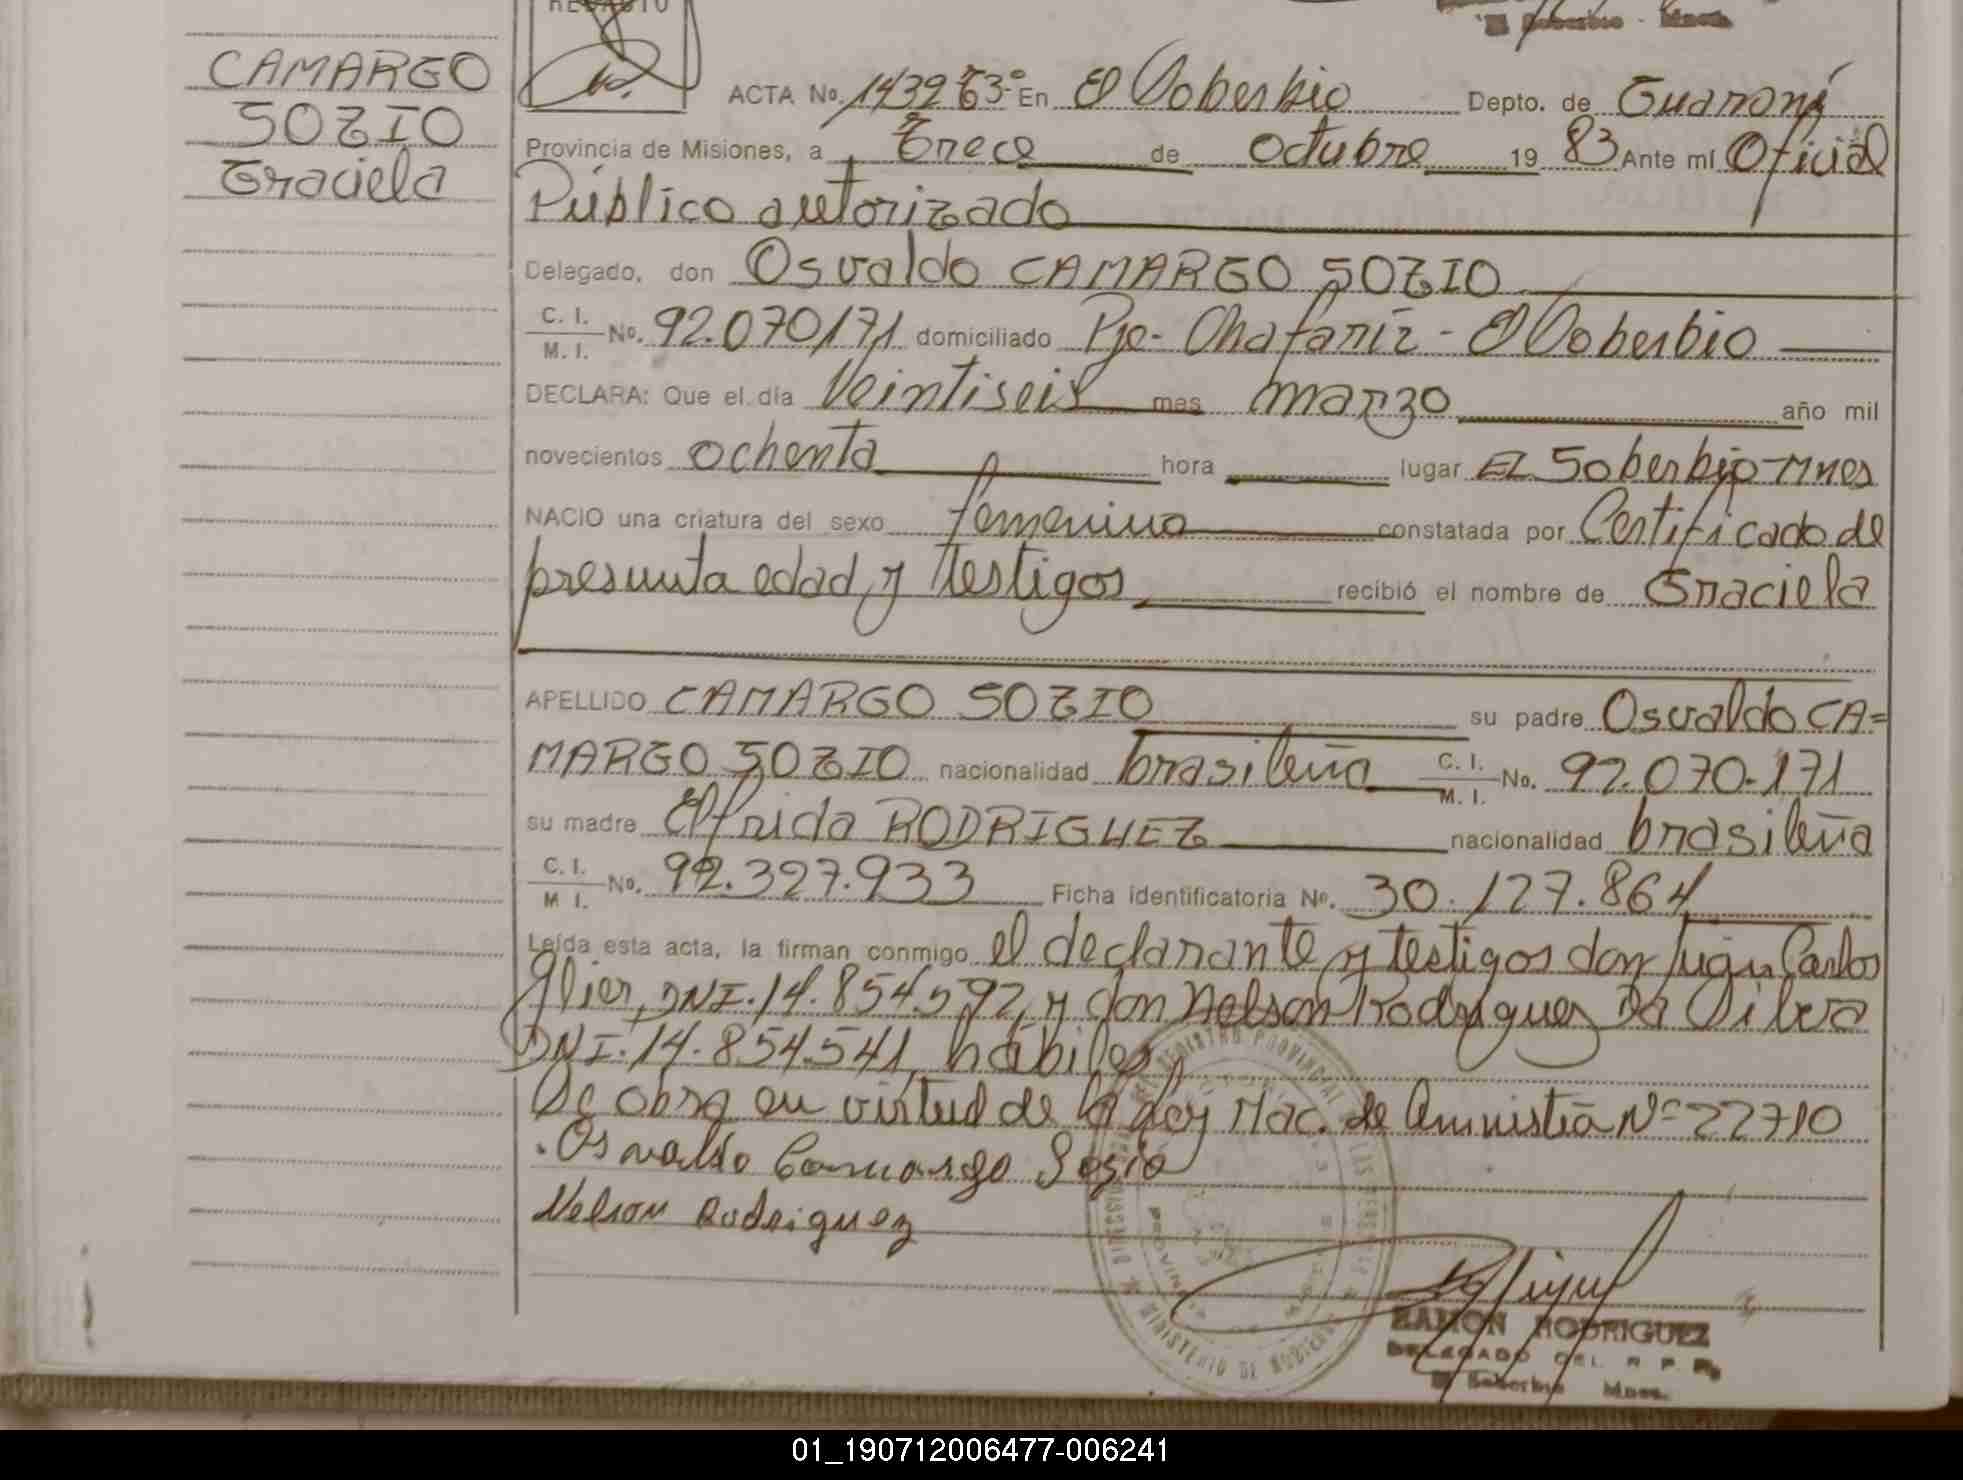 CAMARGO
SOZIO
Graciela
REDACTO
El Soberbio - Mnes.
ACTA No. 1439 T3º En El Soberbio Depto. de Guaraní
Provincia de Misiones, a Trece de Octubre 19 83 Ante mí Oficial
Público autorizado
Delegado, don Osvaldo CAMARGO SOZIO
C. I.
M. I. No. 92.070171 domiciliado Pje- Chafariz - El Soberbio
DECLARA: Que el día Veintiseis mes marzo año mil
novecientos ochenta hora lugar EL Soberbio-Mnes
NACIO una criatura del sexo femenino constatada por Certificado de
presunta edad y testigos recibió el nombre de Graciela
APELLIDO CAMARGO SOZIO su padre Osvaldo CA=
MARGO SOZIO nacionalidad brasileña C. I. M. I. No. 92.070.171
su madre Elfrida RODRIGUEZ nacionalidad brasileña
C. I.
M I. No. 92.327.933 Ficha identificatoria Nº. 30.127.864
Leída esta acta, la firman conmigo el declarante y testigos don Juan Carlos
Glier, DNI.14.854.592, y don Nelson Rodriguez Da Silva
DNI.14.854.541, habiles
Se obra en virtud de la Ley Nac. de Amnistía Nº 22710
Osvaldo Camargo Sozio
Nelson Rodriguez
RAMON RODRIGUEZ
DELEGADO DEL R. P. P.
El Soberbio Mnes.
01_190712006477-006241